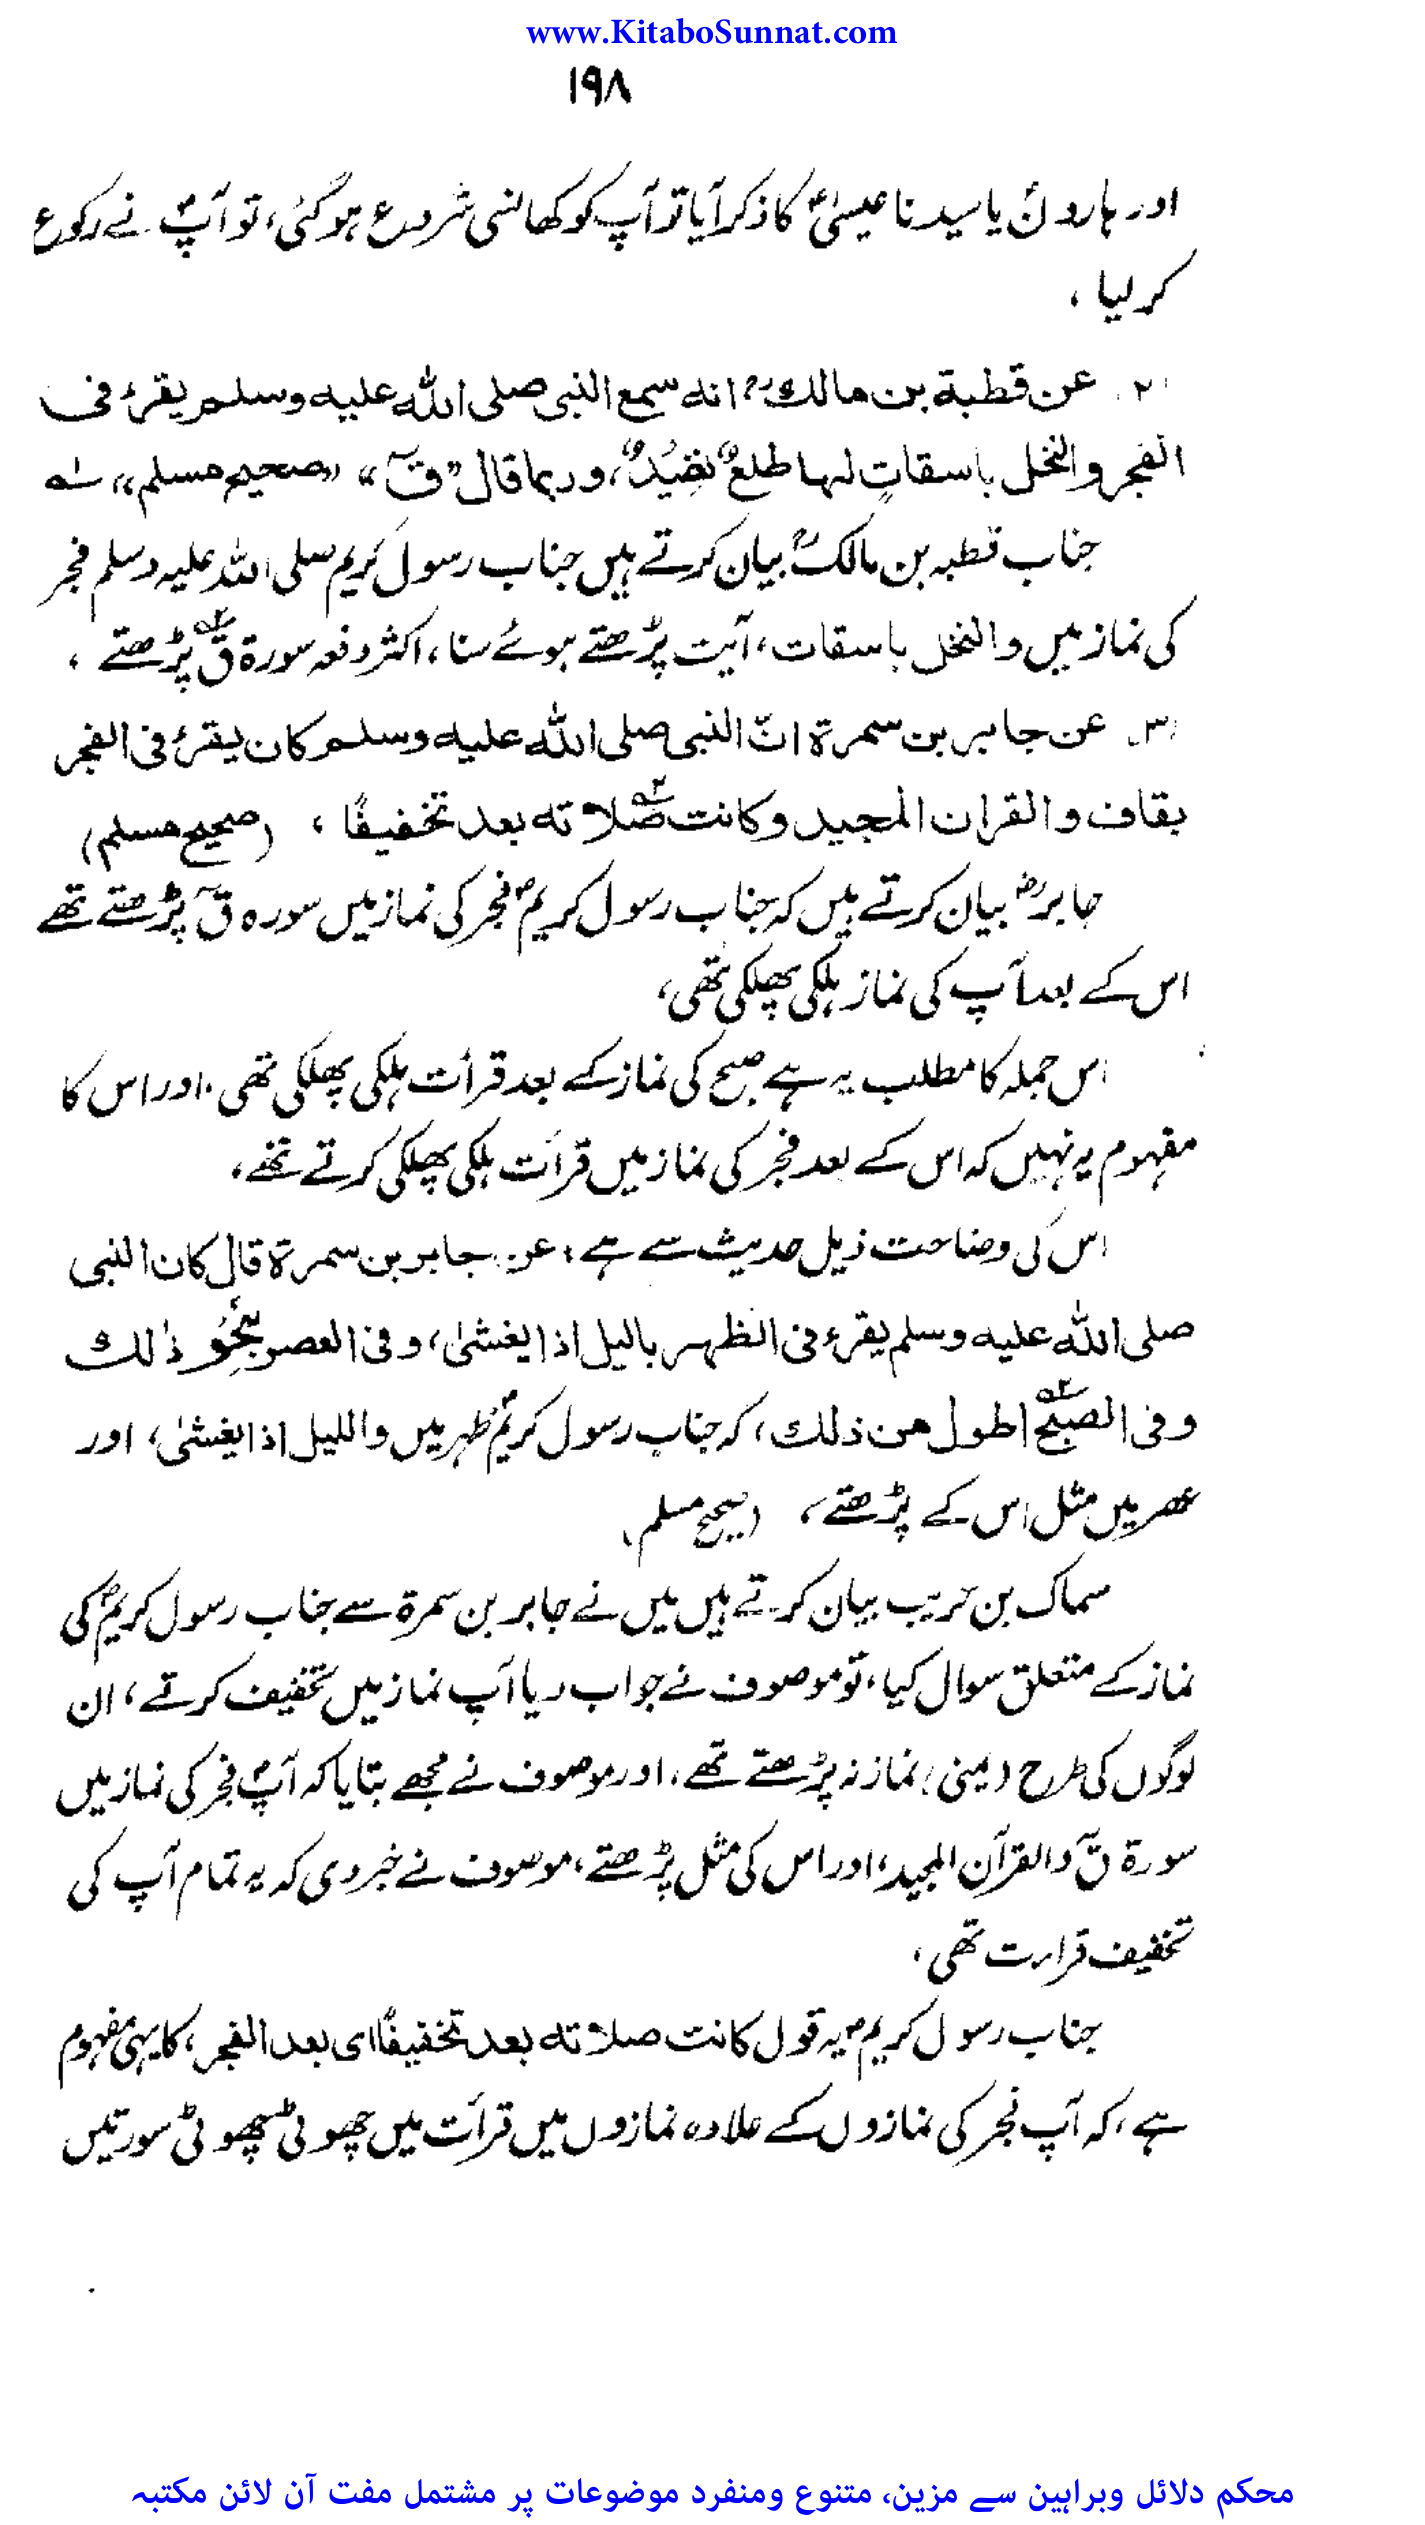 www.KitaboSunnat.com
۱۹۸
اور ہارونؑ یا سیدنا عیسیٰؑ کا ذکر آیا تو آپ کو کھانسی شروع ہو گئی، تو آپؐ نے رکوع
کر لیا ،
۲۔ عن قطبة بن مالكؓ انه سمع النبی صلی الله علیه وسلم یقرء فی
الفجر والنخل باسقاتٍ لہا طلعٌ نضِیدٌ، وربما قال "قٓ" "صحیح مسلم" لہ
جناب قطبہ بن مالکؓ بیان کرتے ہیں جناب رسول کریم صلی اللہ علیہ وسلم فجر
کی نماز میں والنخل باسقات، آیت پڑھتے ہوئے سنا، اکثر دفعہ سورۃ قٓ پڑھتے ،
۳۔ عن جابر بن سمرة انّ النبی صلی الله علیه وسلم کان یقرء فی الفجر
بقاف والقران المجید وکانت صلاته بعد تخفیفًا ، (صحیح مسلم)
جابرؓ بیان کرتے ہیں کہ جناب رسول کریمؐ فجر کی نماز میں سورہ قٓ پڑھتے تھے
اس کے بعد آپ کی نماز ہلکی پھلکی تھی،
اس جملہ کا مطلب یہ ہے صبح کی نماز کے بعد قرأت ہلکی پھلکی تھی۔ اور اس کا
مفہوم یہ نہیں کہ اس کے بعد فجر کی نماز میں قرأت ہلکی پھلکی کرتے تھے،
اس کی وضاحت ذیل حدیث سے ہے ؛ عن جابر بن سمرة قال کان النبی
صلی الله علیه وسلم یقرء فی الظهر بالیل اذا یغشیٰ، وفی العصر بنَحْوِ ذٰلك
وفی الصبح اطول من ذلك، کہ جناب رسول کریمؐ ظہر میں واللیل اذا یغشیٰ، اور
عصر میں مثل اس کے پڑھتے، (صحیح مسلم)
سماک بن حرب بیان کرتے ہیں میں نے جابر بن سمرۃ سے جناب رسول کریمؐ کی
نماز کے متعلق سوال کیا، تو موصوف نے جواب دیا آپ نماز میں تخفیف کرتے، ان
لوگوں کی طرح نماز نہ پڑھتے تھے، اور موصوف نے مجھے بتایا کہ آپؐ فجر کی نماز میں
سورۃ قٓ والقرآن المجید، اور اس کی مثل پڑھتے، موصوف نے خبر دی کہ یہ تمام آپ کی
تخفیف قرارت تھی،
جناب رسول کریمؐ یہ قول کانت صلاته بعد تخفیفًا ای بعد الفجر، کا یہی مفہوم
ہے، کہ آپ فجر کی نمازوں کے علاوہ نمازوں میں قرأت میں چھوٹی چھوٹی سورتیں
محکم دلائل وبراہین سے مزین، متنوع ومنفرد موضوعات پر مشتمل مفت آن لائن مکتبہ